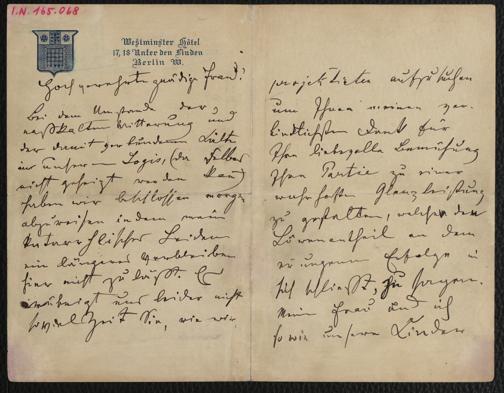 I.N. 165.068
Westminster Hôtel
17, 18 Unter den Linden
Berlin W.
Hochverehrte gnädige Frau!
Bei dem Umstande der
nasskalten Witterung und
der damit verbundenen Kälte
in unserem Logis, (da selbes
nicht geheizt werden kann)
haben wir beschlossen morgen
abzureisen indem mein
katarrhlisches Leiden
ein längeres Verbleiben
hier nicht zu lässt. Es
erübrigt uns leider nicht
soviel Zeit Sie, wie wir
projektirten aufzusuchen
um Ihnen meinen ver-
bindlichsten Dank für
Ihre liebevolle Bemühung
Ihre Partie zu einer
wahrhaften Glanzleistung
zu gestalten, welche den
Löwenantheil an dem
errungenen Erfolge in
sich schliesst, zu sagen.
Meine Frau und ich
sowie unsere Kinder